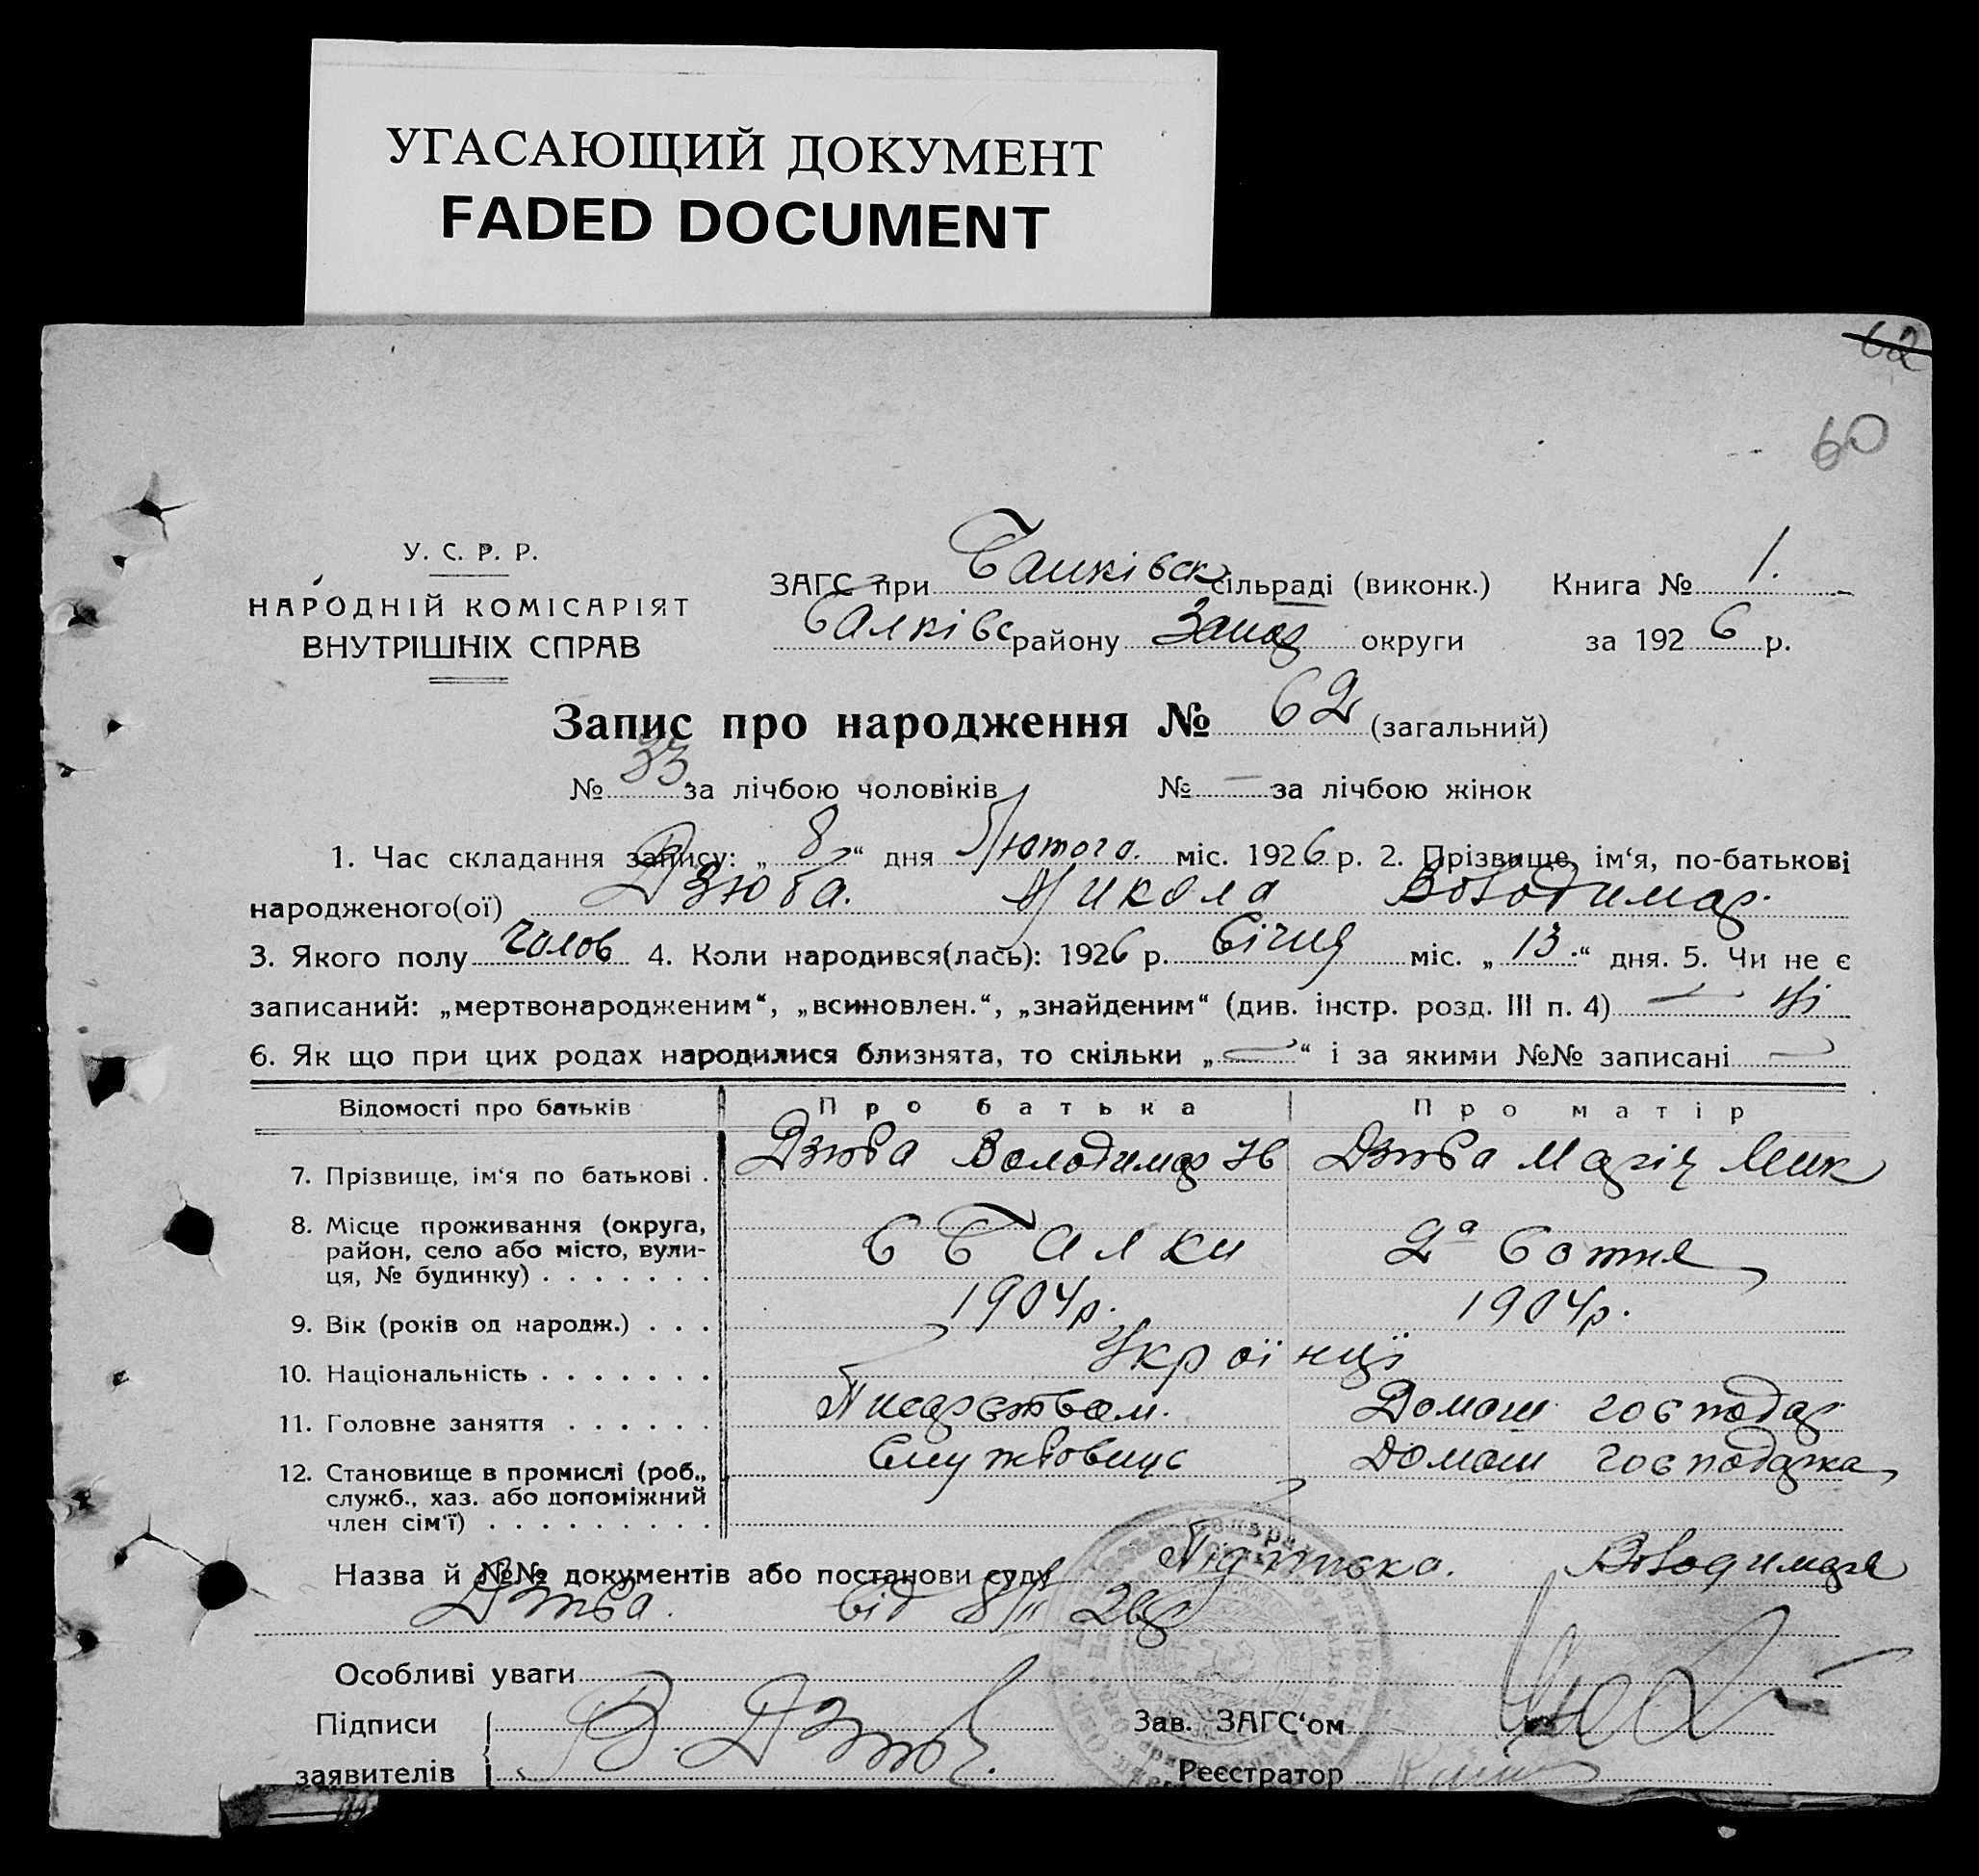 УГАСАЮЩИЙ ДОКУМЕНТ
FADED DOCUMENT
62
60
У. С. Р. Р.
НАРОДНІЙ КОМІСАРІЯТ
ВНУТРІШНІХ СПРАВ
ЗАГС при Балківськ сільраді (виконк.) Книга № 1.
Балківс району Запор округи за 1926 р.
Запис про народження № 62 (загальний)
№ 33 за лічбою чоловіків № — за лічбою жінок
1. Час складання запису: „8“ дня Лютого міс. 1926 р. 2. Прізвище, ім‘я, по-батькові
народженого(ої) Дзюба. Микола Володимир.
3. Якого полу чолов 4. Коли народився(лась): 1926 р. Січня міс. „13.“ дня. 5. Чи не є
записаний: „мертвонародженим“, „всиновлен.“, „знайденим“ (див. інстр. розд. III п. 4) — Ні
6. Як що при цих родах народилися близнята, то скільки „—“ і за якими №№ записані —
Відомості про батьків Про батька Про матір
7. Прізвище, ім‘я по батькові . Дзюба Володимир Ів Дзюба Марія Мик
8. Місце проживання (округа,
район, село або місто, вули-
ця, № будинку) . . . . . . . С Балки 2а Сотня
9. Вік (років од народж.) . . . 1904р. 1904р.
10. Національність . . . . . . . Українці
11. Головне заняття . . . . . . Писарством. Домаш господар
12. Становище в промислі (роб.,
служб., хаз. або допоміжний
член сім‘ї) . . . . . . . . . Службовиць Домаш господарка
Назва й №№ документів або постанови суду Підписка. Володимира
Дзюба. від 8/II 26р
Особливі уваги
Підписи
заявителів В. Дзюба.
Зав. ЗАГС‘ом
Реєстратор